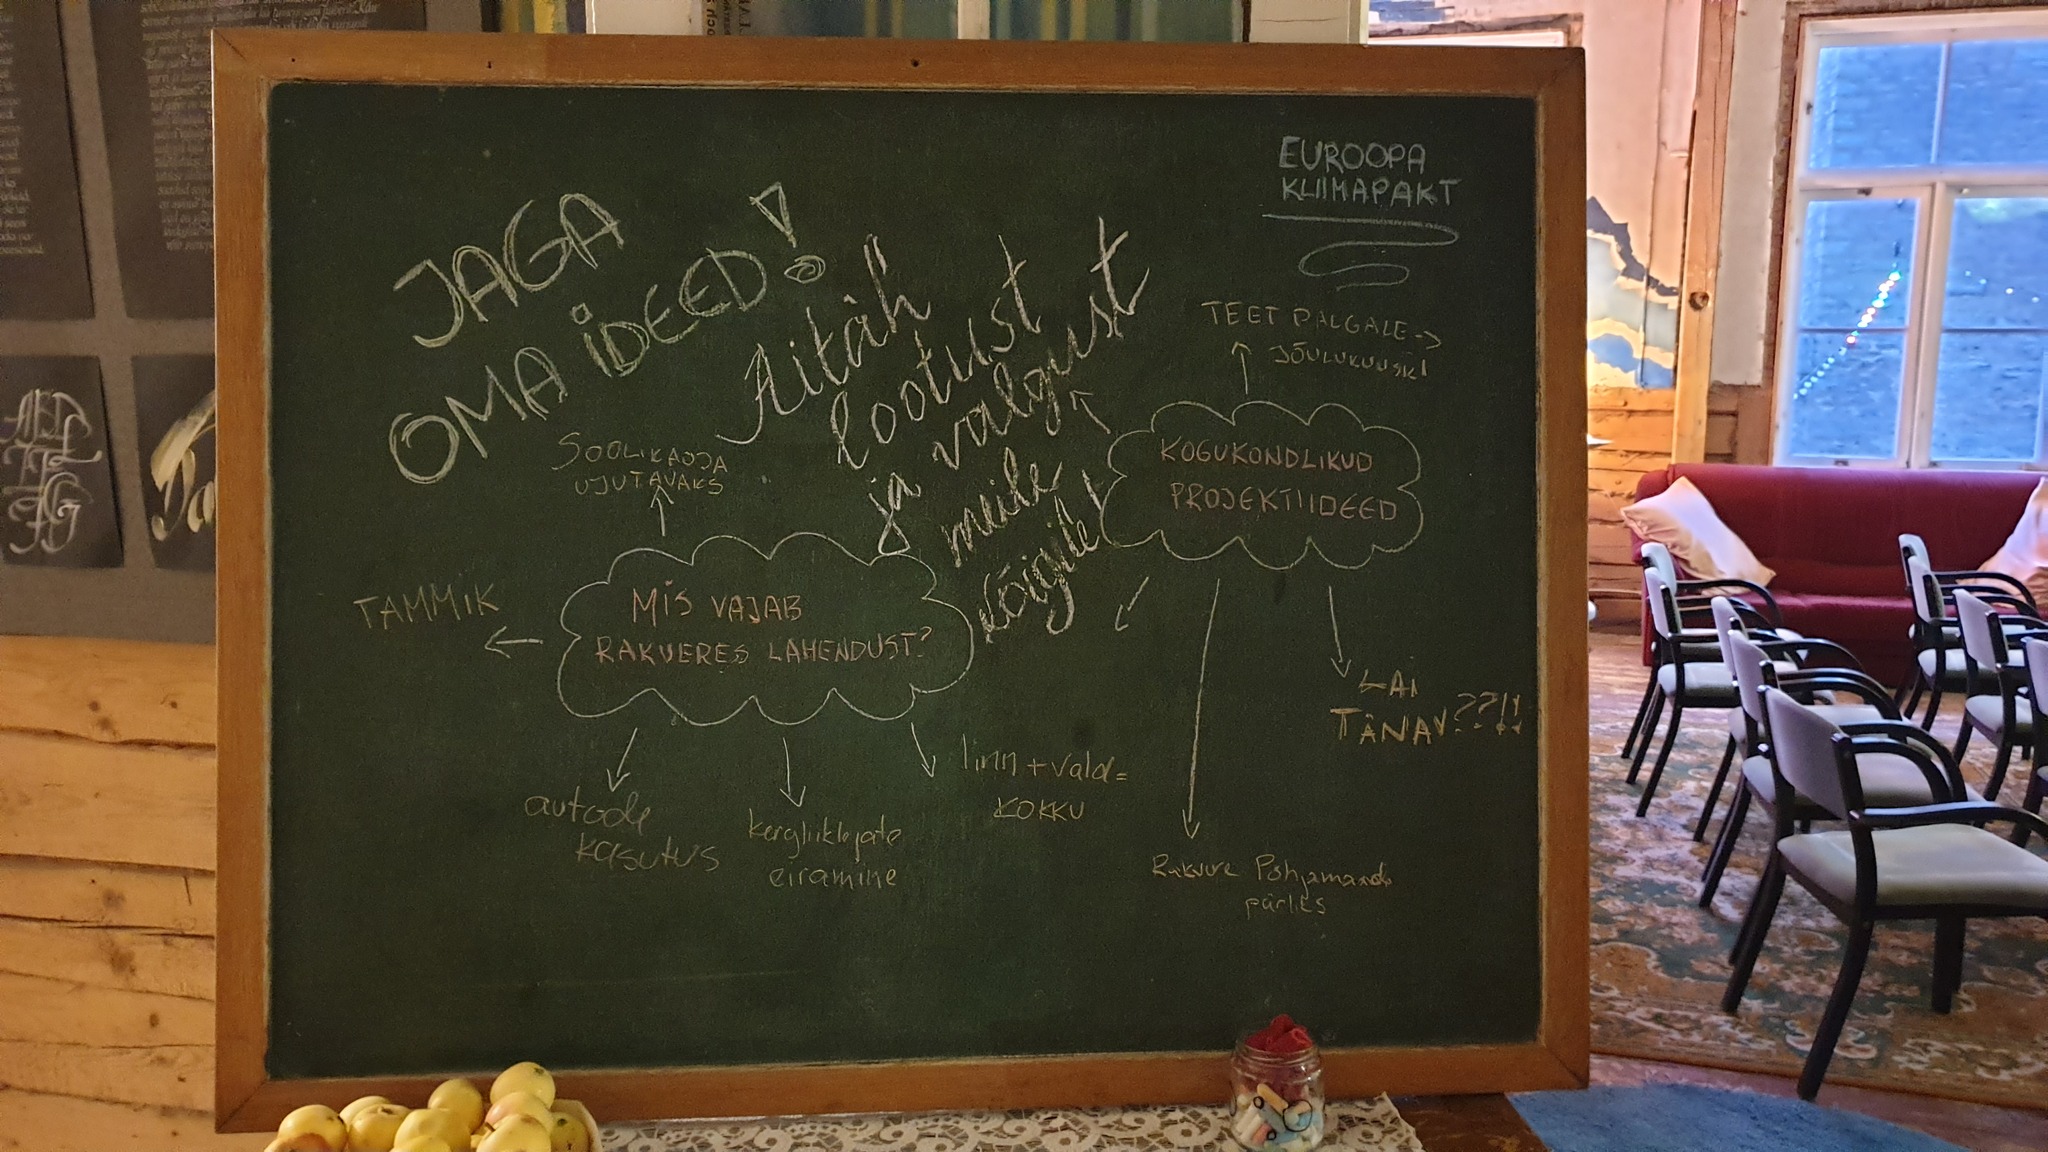 JAGA
OMA IDEED!
Aitäh
lootust
ja valgust
meile
kõigile!
EUROOPA
KLIIMAPAKT
TEET PALGALE →
JÕULUKUUSKI
KOGUKONDLIKUD
PROJEKTIIDEED
SOOLIKAOJA
UJUTAVAKS
TAMMIK
MIS VAJAB
RAKVERES LAHENDUST?
autode
kasutus
kergliiklejate
eiramine
linn + vald =
KOKKU
LAI
TÄNAV??!!
Rakvere Põhjamaade
pärliks